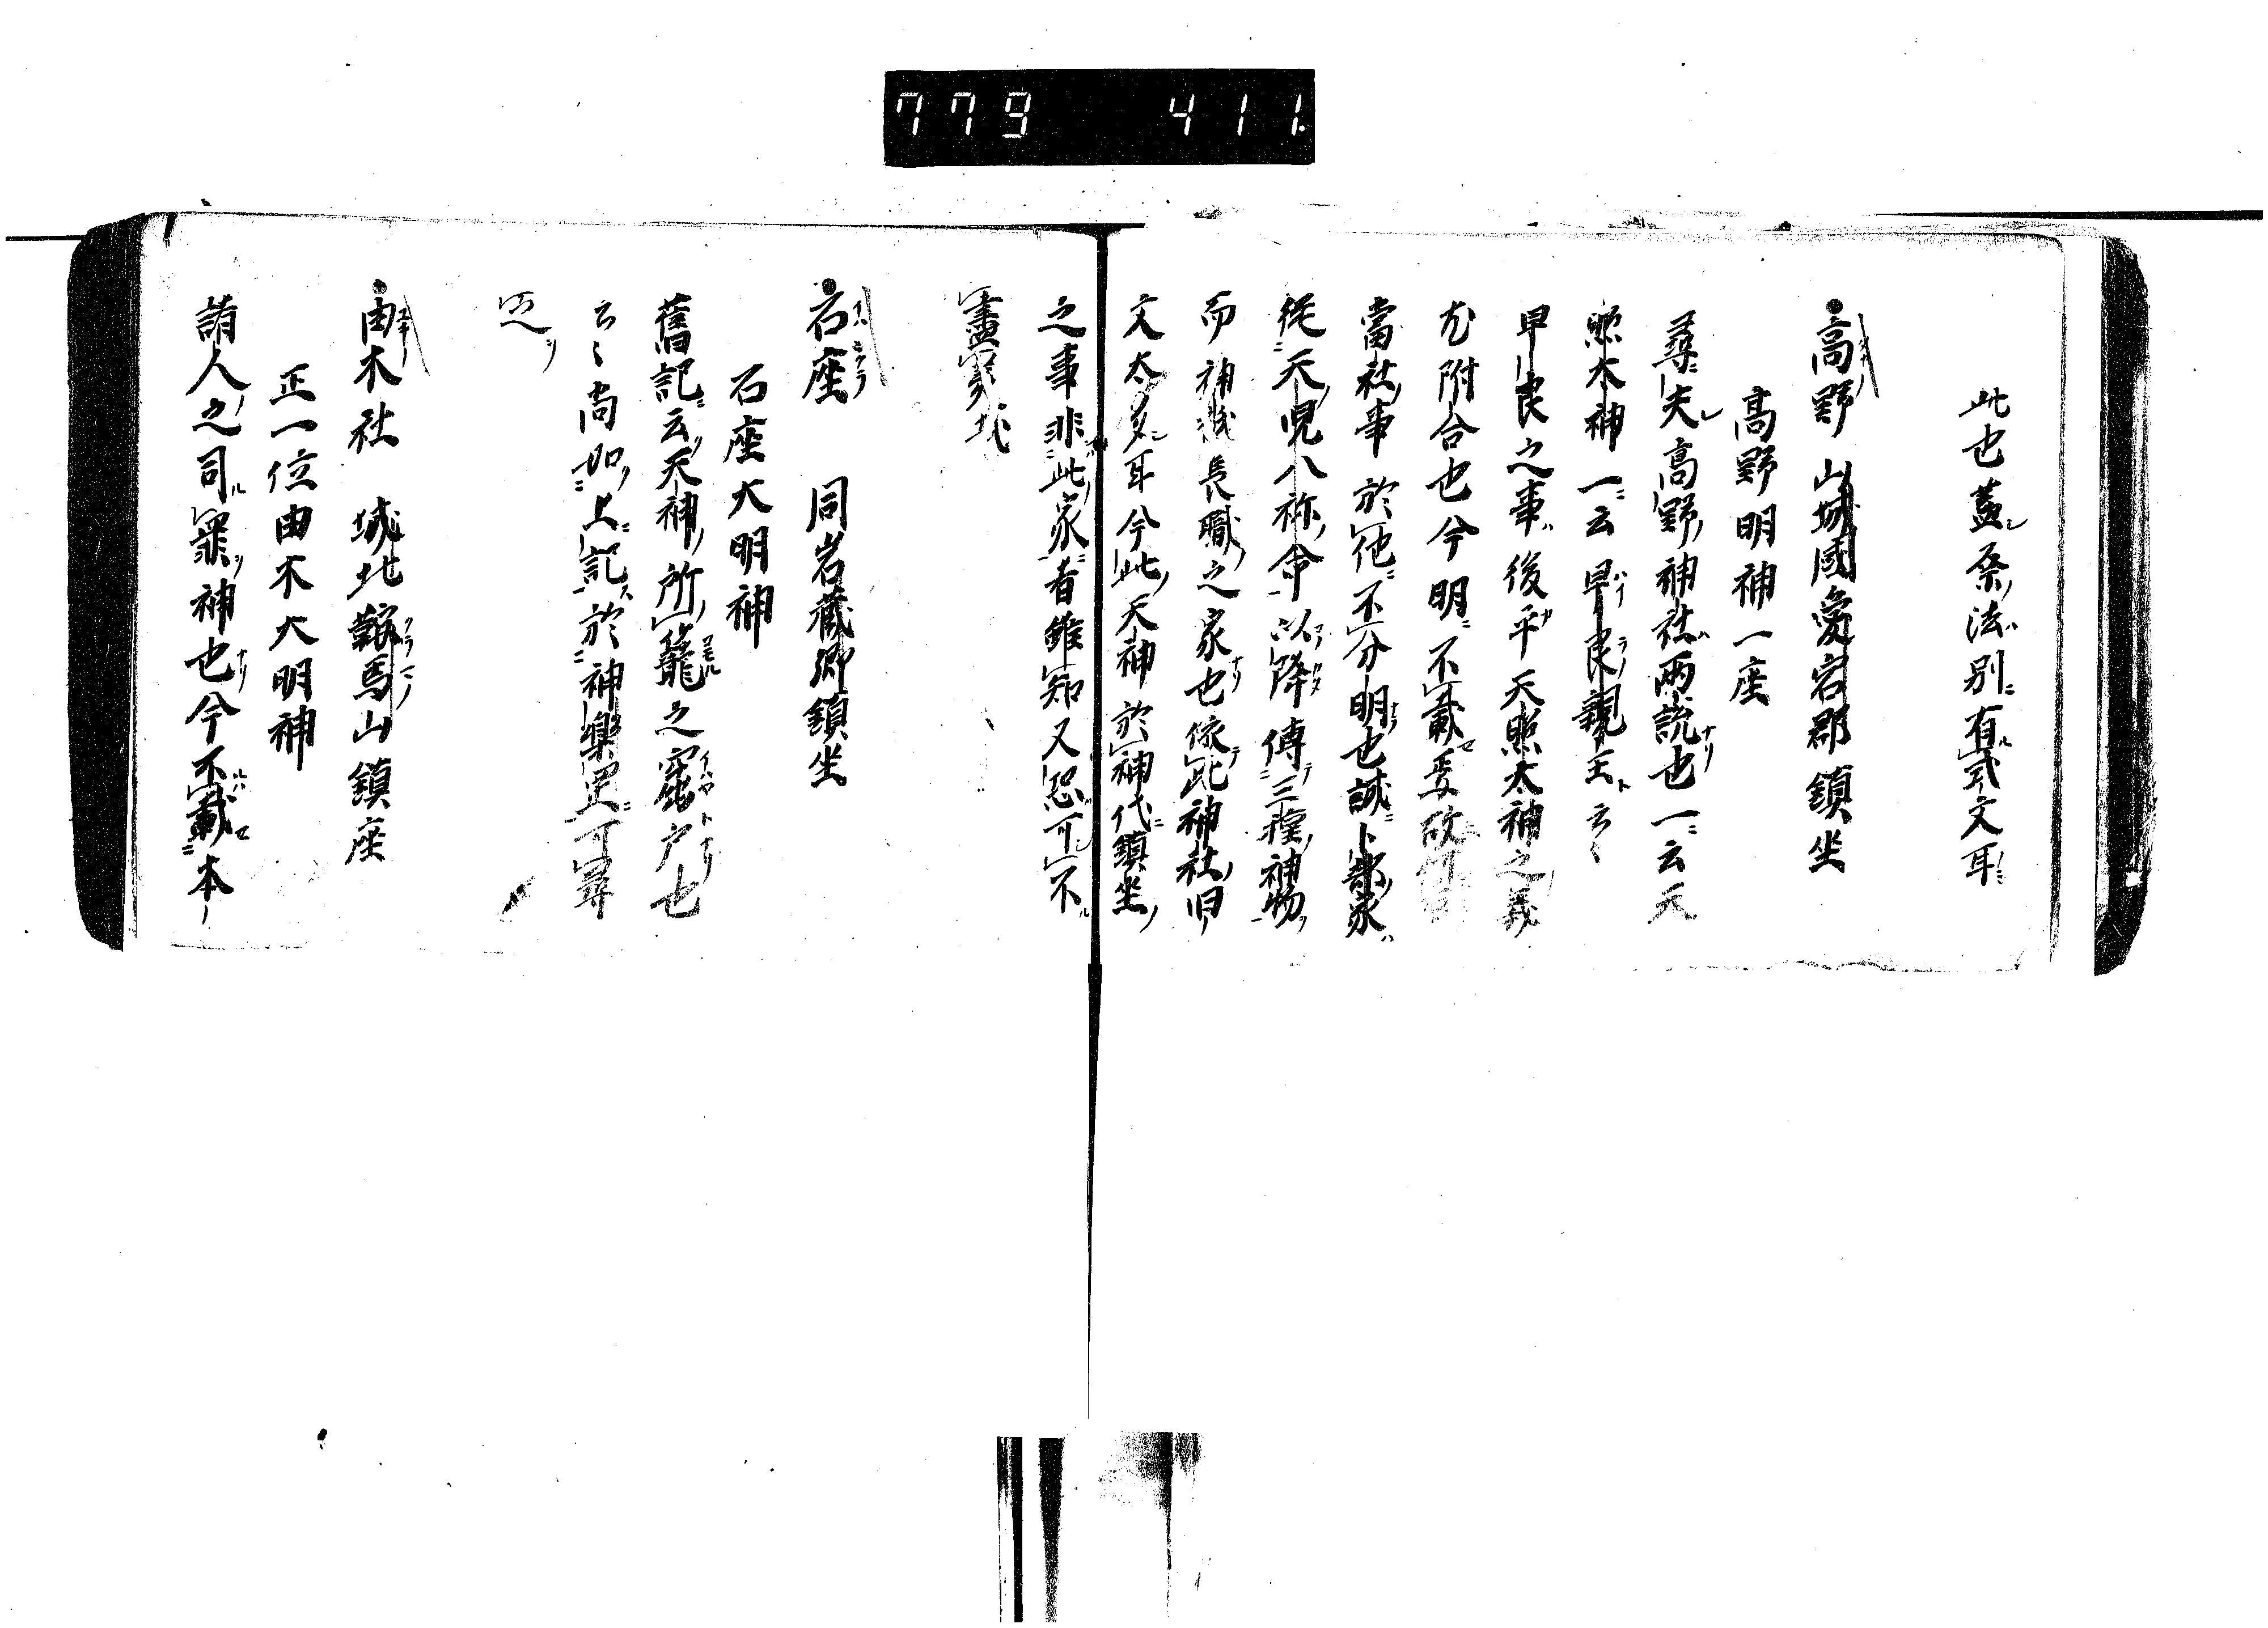 779 411.
此也蓋祭法別有式文耳
高野 山城國愛宕郡鎮坐
高野明神一座
尋夫高野神社両説也一云天
照太神一云早良親王云〻
早良之事後平天照太神之義
尤附合也今明不載焉故
當社事於他不分明也誠卜部家
従天児八祢命以降傳三種神物
而神 長職之家也依此神社旧
文太多耳今此天神於神代鎮坐
之事非此家者雖知又恐可不
盡実哉
石座 同岩藏郷鎮坐
石座大明神
舊記云天神所籠之窟戸也
云〻尚如上記於神樂 可尋
之
由木社 城北鞍馬山鎮座
正一位由木大明神
請人之司 神也今不載本